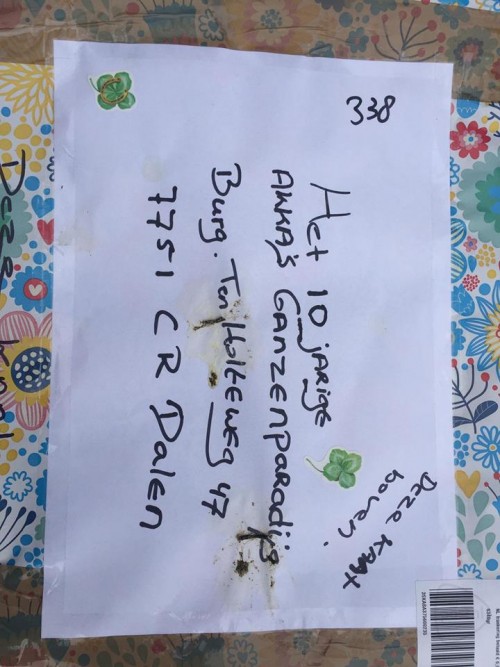 338
Het 10 jarige
ANKA's GANZENPARADIJS
Burg. Ten Holteweg 47
7751 CR Dalen
Deze KANt
boven.
Deze